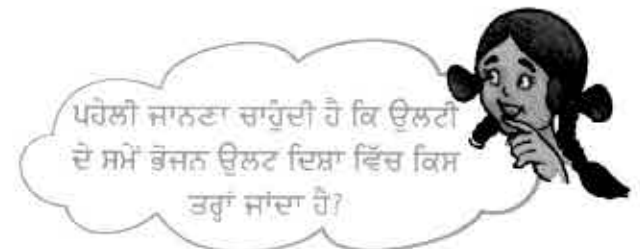 ਪਹੇਲੀ ਜਾਨਣਾ ਚਾਹੁੰਦੀ ਹੈ ਕਿ ਉਲਟੀ
ਦੇ ਸਮੇਂ ਭੋਜਨ ਉਲਟ ਦਿਸ਼ਾ ਵਿੱਚ ਕਿਸ
ਤਰ੍ਹਾਂ ਜਾਂਦਾ ਹੈ?